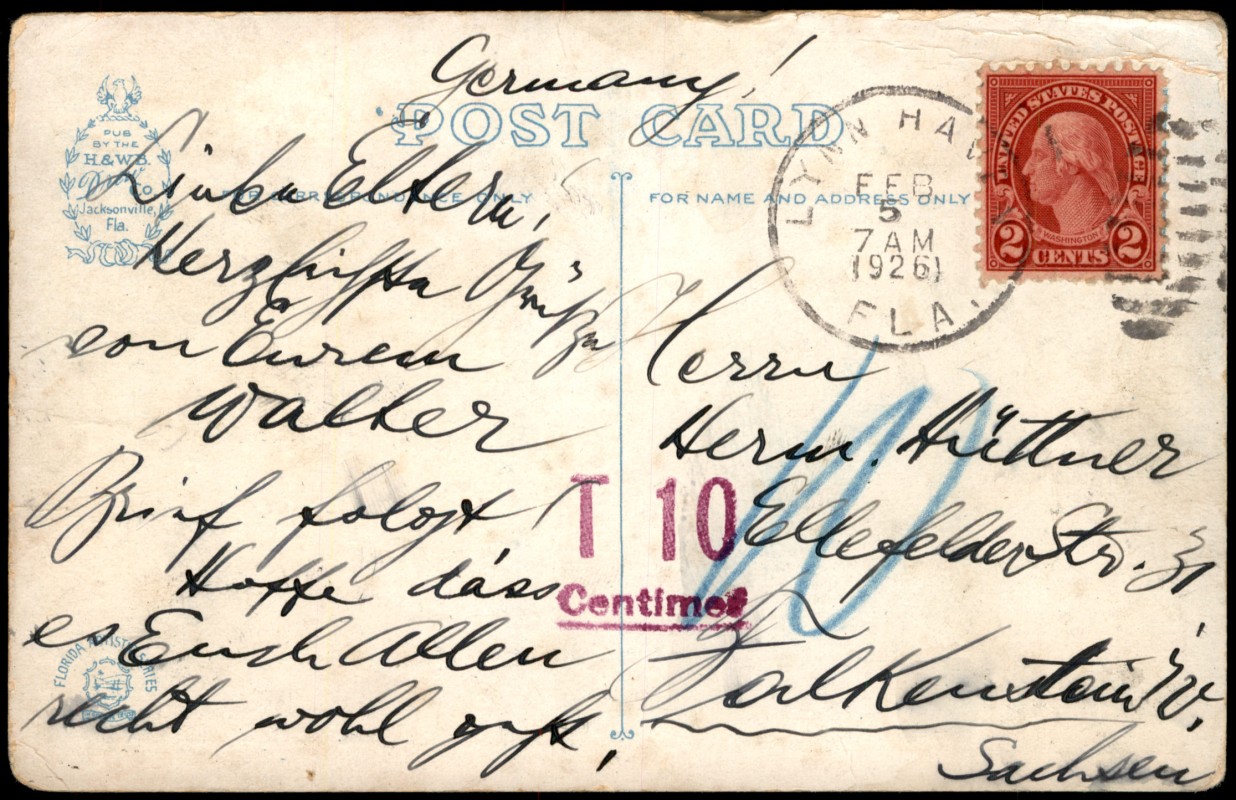 Germany!
POST CARD
PUB
BY THE
H.& W.B.
Drew Co
Jacksonville,
Fla.
FOR CORRESPONDENCE ONLY
FOR NAME AND ADDRESS ONLY
LYNN HAVEN
FEB
5
7 AM
1926
FLA.
UNITED STATES POSTAGE
WASHINGTON
2 CENTS 2
Liebe Eltern,
Herzlichste Grüße
von Eurem
Walter
Brief folgt
Hoffe dass
es Euch Allen
recht wohl geht,
T 10
Centimes
10
Herrn
Herm. Hüttner
Ellefelder Str. 31
Falkenstein i/V.
Sachsen
FLORIDA ARTISTIC SERIES